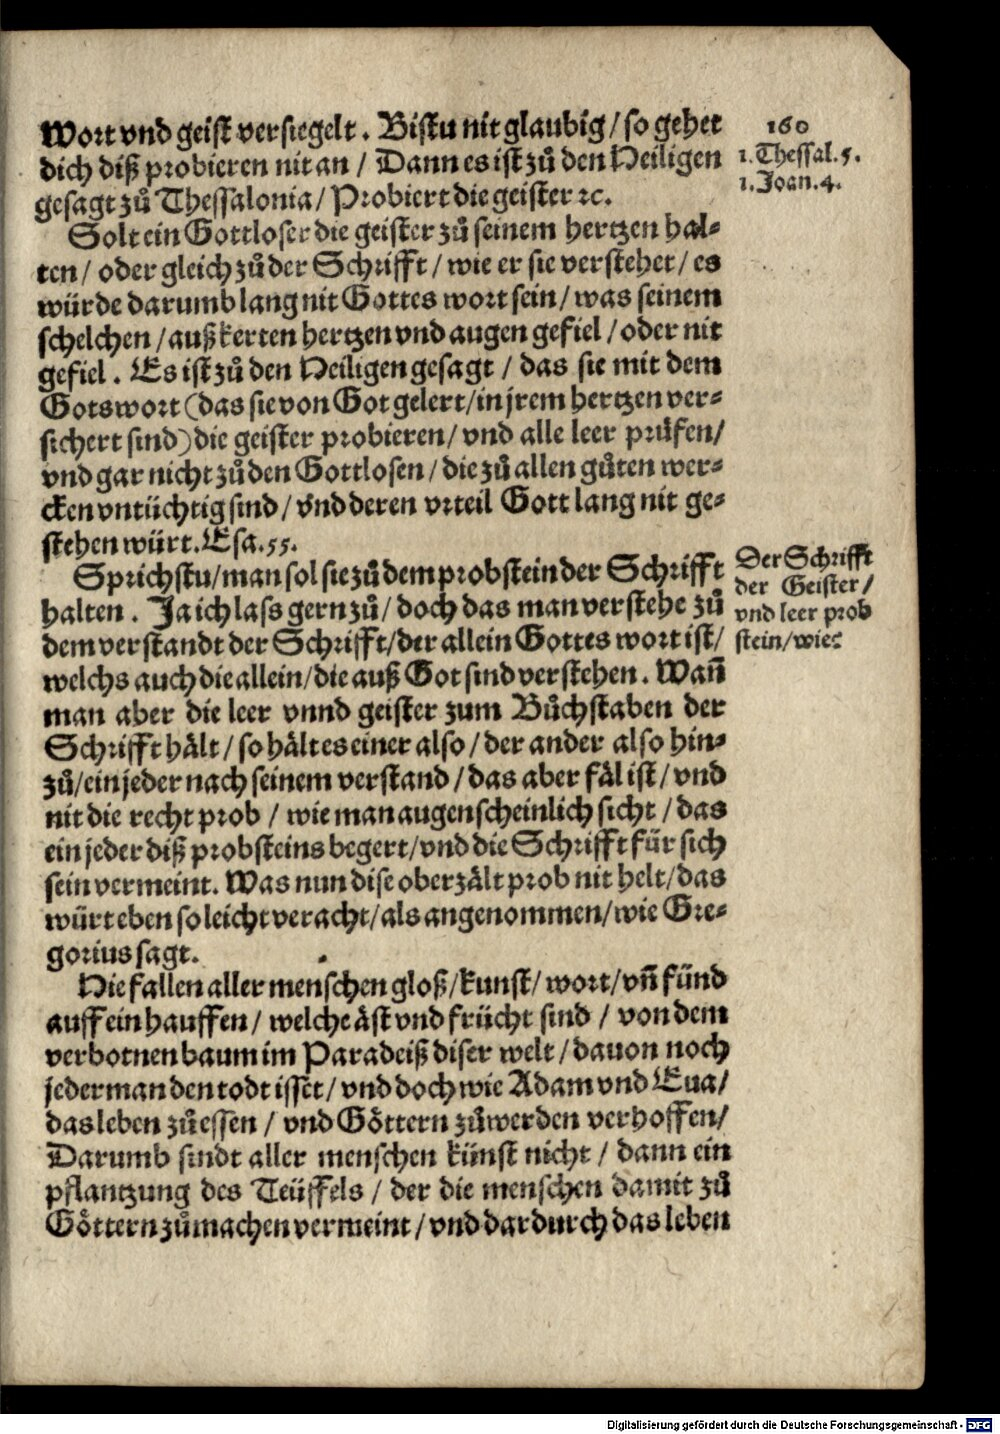 Wort vnd geist versiegelt. Bistu nit glaubig/ so gehet
dich diß probieren nit an/ Dann es ist zů den Heiligen
gesagt zů Thessalonia/ Probiert die geister ꝛc.
Solt ein Gottloser die geister zů seinem hertzen hal-
ten/ oder gleich zů der Schrifft/ wie er sie verstehet/ es
würde darumb lang nit Gottes wort sein/ was seinem
schelchen/ außkerten hertzen vnd augen gefiel/ oder nit
gefiel. Es ist zů den Heiligen gesagt/ das sie mit dem
Gotswort (das sie von Got gelert/ in jrem hertzen ver-
sichert sind) die geister probieren/ vnd alle leer prüfen/
vnd gar nicht zů den Gottlosen/ die zů allen gůten wer-
cken vntüchtig sind/ vnd deren vrteil Gott lang nit ge-
stehen würt. Esa. 55.
Sprichstu/ man sol sie zů dem probstein der Schrifft
halten. Ja ich lass gern zů/ doch das man verstehe zů
dem verstandt der Schrifft/ der allein Gottes wort ist/
welchs auch die allein/ die auß Got sind verstehen. Wañ
man aber die leer vnnd geister zum Bůchstaben der
Schrifft hält/ so hält es einer also/ der ander also hin-
zů/ ein jeder nach seinem verstand/ das aber fäl ist/ vnd
nit die recht prob/ wie man augenscheinlich sicht/ das
ein jeder diß probsteins begert/ vnd die Schrifft für sich
sein vermeint. Was nun dise oberzält prob nit helt/ das
würt eben so leicht veracht/ als angenommen/ wie Gre-
gorius sagt.
Hie fallen aller menschen gloß/ kunst/ wort/ vñ fünd
auff ein hauffen/ welche äst vnd frücht sind/ von dem
verbotnen baum im Paradeiß diser welt/ dauon noch
jederman den todt isset/ vnd doch wie Adam vnd Eua/
das leben zů essen/ vnd Göttern zů werden verhoffen/
Darumb sindt aller menschen künst nicht/ dann ein
pflantzung des Teüffels/ der die menschen damit zů
Göttern zů machen vermeint/ vnd dardurch das leben
160
1. Thessal. 5.
1. Joan. 4.
Der Schrifft
der Geister/
vnd leer prob
stein/ wie:
Digitalisierung gefördert durch die Deutsche Forschungsgemeinschaft - DFG